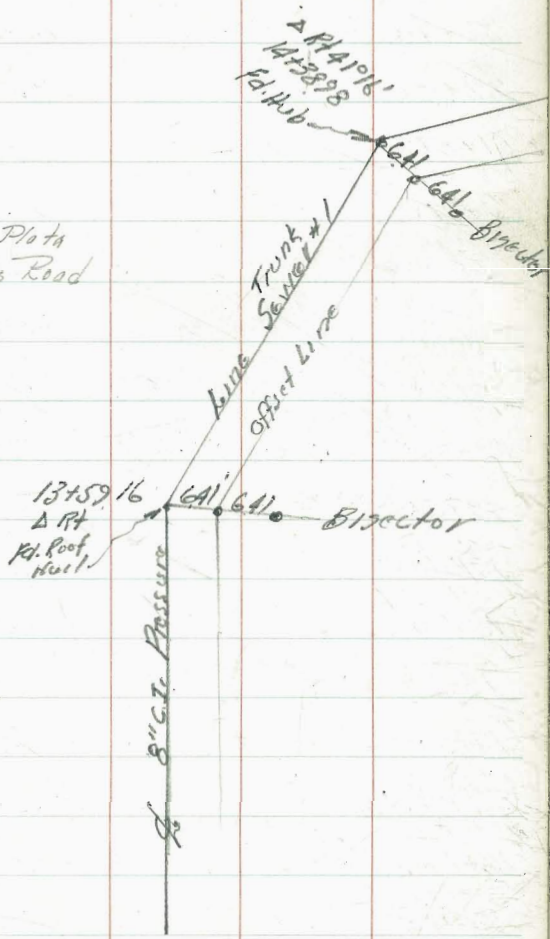 Δ Rt 41°16'
14+38 98
Fd. Hub
6.41
6.41
Bisector
Plata
Road
Trunk
Line Sewer #1
Offset Line
13+59 16
Δ Rt
Fd. Roof
Nail
6.41'
6.41
Bisector
℄ 8" C.I. Pressure